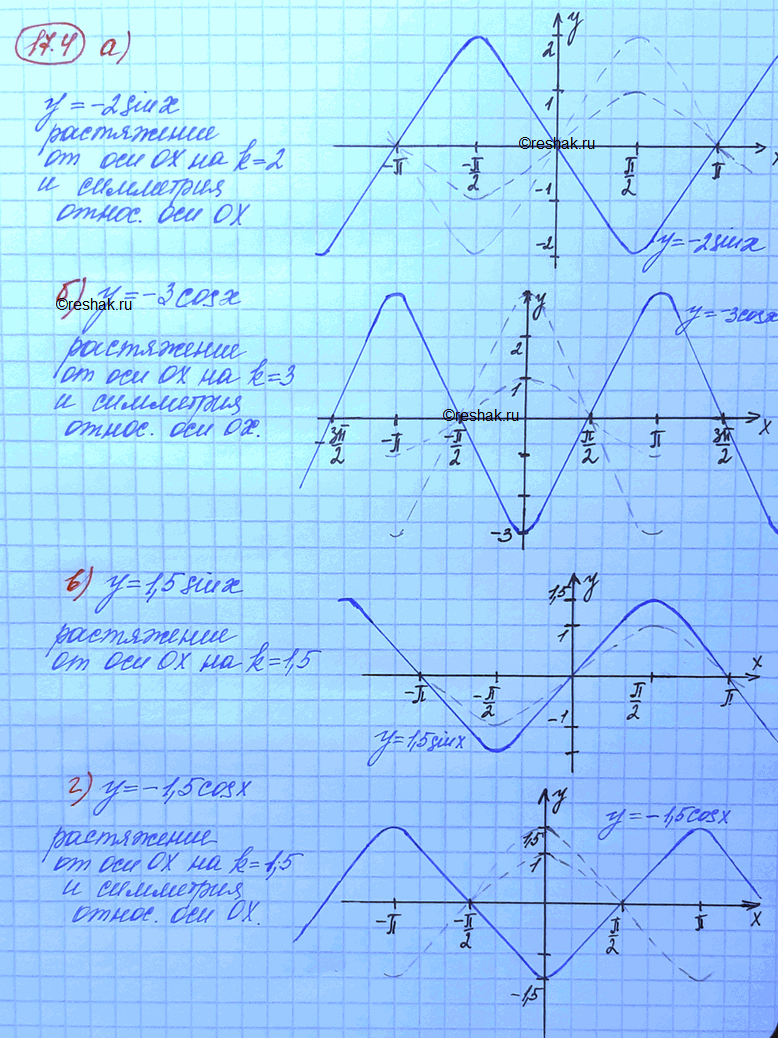 17.4 а)
y = -2sinx
растяжение
от оси OX на k=2
и симметрия
относ. оси OX
y
2
1
-1
-2
-π
-π/2
π/2
π
x
©reshak.ru
y = -2sinx
б) y = -3cosx
©reshak.ru
растяжение
от оси OX на k=3
и симметрия
относ. оси OX.
y
2
1
-3
-3π/2
-π
-π/2
π/2
π
3π/2
x
©reshak.ru
y = -3cosx
в) y = 1,5sinx
растяжение
от оси OX на k=1,5
y
1,5
1
-1
-π
-π/2
π/2
π
x
y = 1,5sinx
г) y = -1,5cosx
растяжение
от оси OX на k=1,5
и симметрия
относ. оси OX.
y
1,5
1
-1,5
-π
-π/2
π/2
π
x
y = -1,5cosx